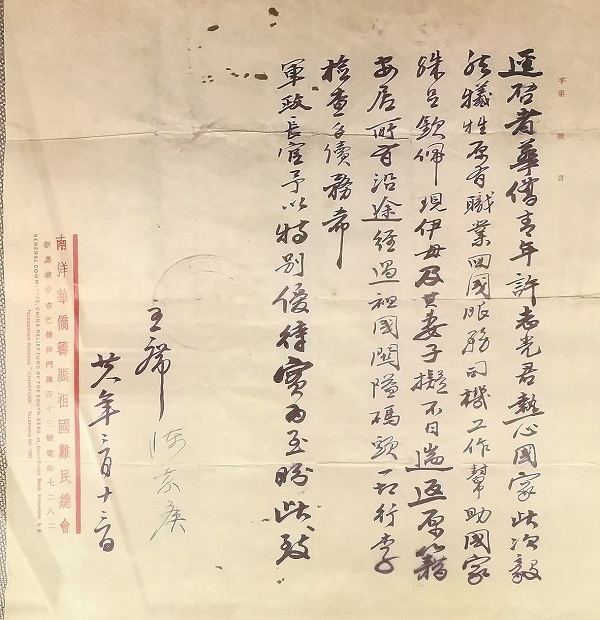 字第 號 頁
逕启者華僑青年許志光君熱心國家此次毅
然犧牲原有職業回國服務司機工作幫助國家
殊足欽佩現伊母及其妻子擬不日遄返原籍
安居所有沿途經過祖國關隘碼頭一切行李
檢查手續務希
軍政長官予以特別優待實為至盼此致
主席 陳嘉庚
廿八年三月十三日
南洋華僑籌賑祖國難民總會
新嘉坡武吉巴梳律門牌四十三號電話七二八二
GENERAL COMMITTEE, CHINA RELIEF FUND OF THE SOUTH SEAS, 43, BUKIT PASOH ROAD, SINGAPORE, S.S.
Telegraphic Address: Telephone No. 7282